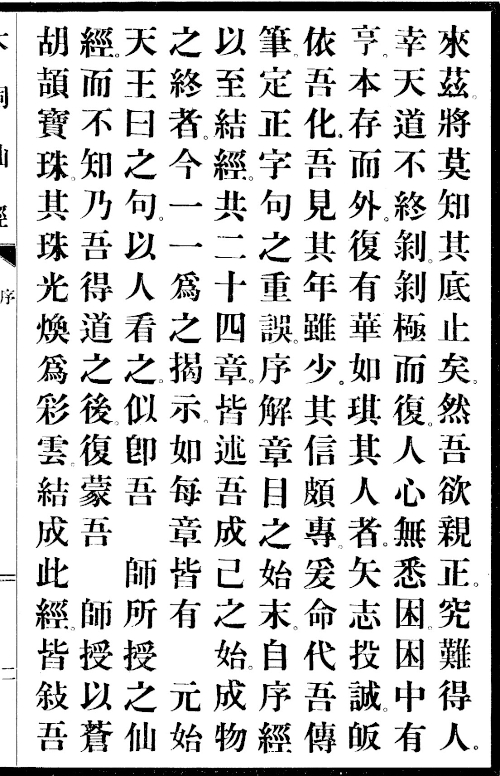 來茲。將莫知其底止矣。然吾欲親正。究難得人。
幸天道不終剝。剝極而復。人心無悉困。困中有
亨。本存而外。復有華如琪其人者。矢志投誠。皈
依吾化。吾見其年雖少。其信頗專。爰命代吾傳
筆。定正字句之重誤。序解章目之始末。自序經
以至結經。共二十四章。皆述吾成己之始。成物
之終者。今一一爲之揭示。如每章皆有　元始
天王曰之句。以人看之。似卽吾　師所授之仙
經。而不知乃吾得道之後。復蒙吾　師授以蒼
胡頡寶珠。其珠光煥爲彩雲。結成此經。皆敍吾
洞仙經
序
二